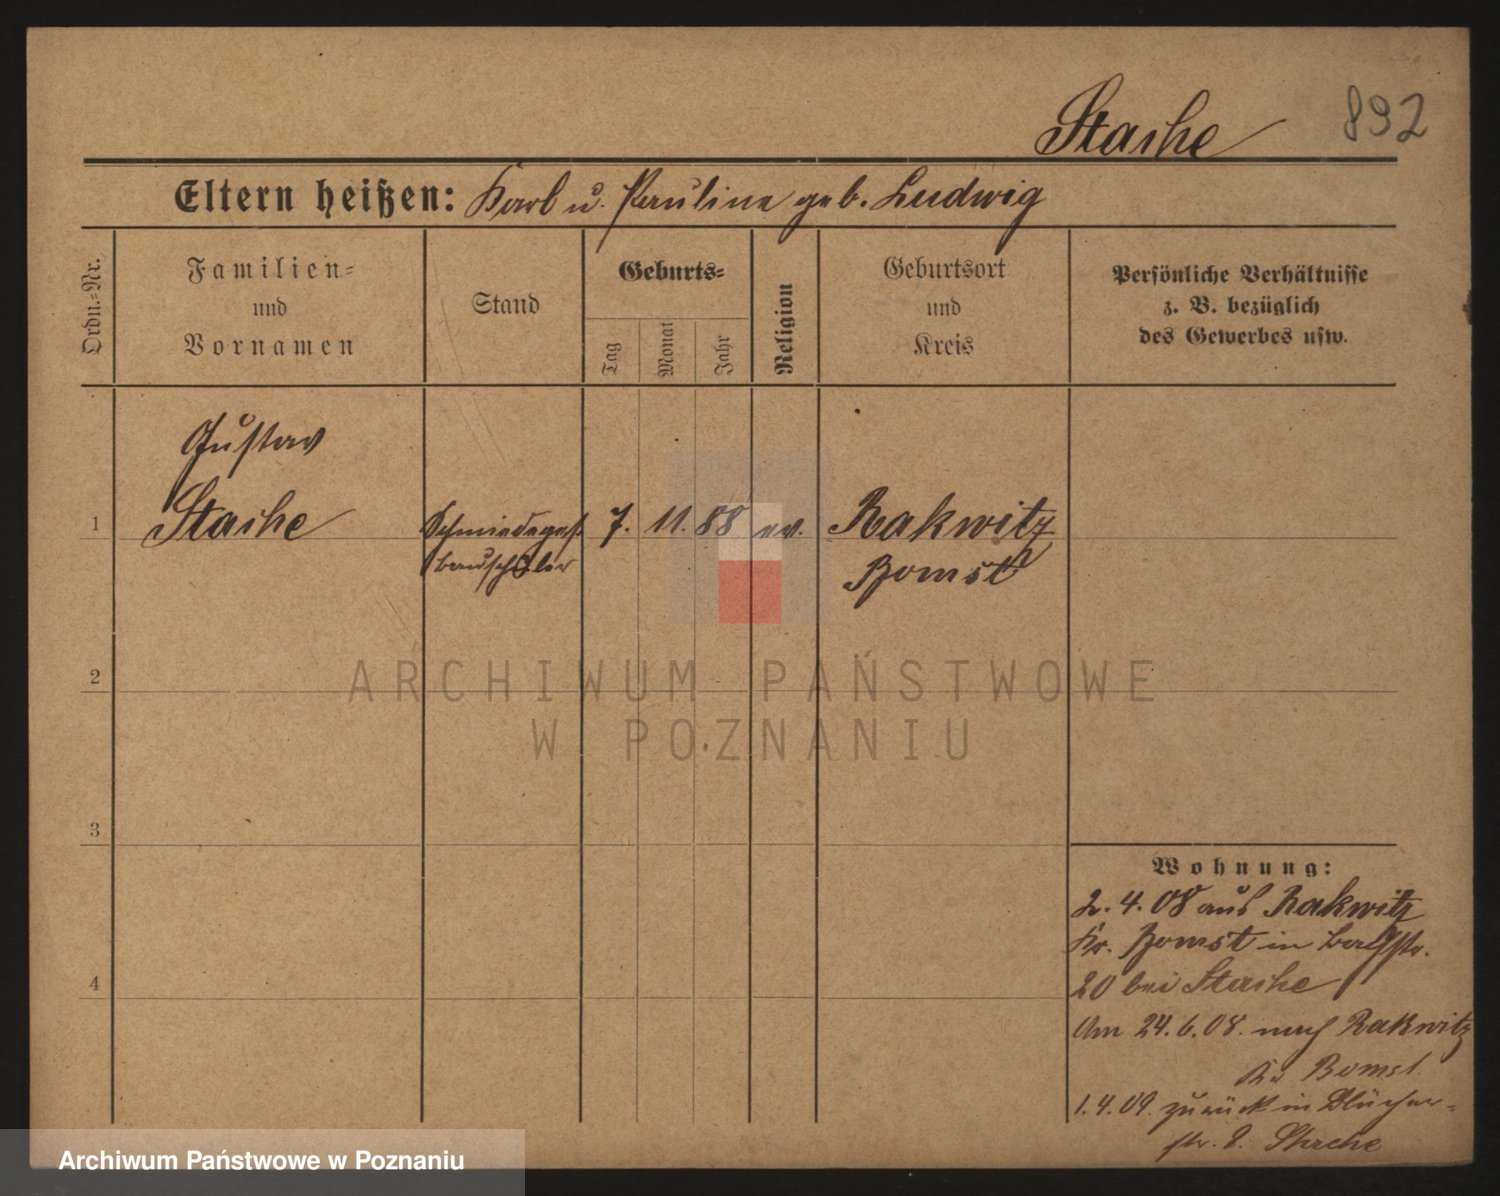 Stache 892
Eltern heißen: Karl u. Pauline geb. Ludwig
Ordn.-Nr.
Familien=
und
Vornamen
Stand
Geburts=
Tag
Monat
Jahr
Religion
Geburtsort
und
Kreis
Persönliche Verhältnisse
z. B. bezüglich
des Gewerbes usw.
Gustav
1 Stache Schmiedeges. 7. 11. 88 ev. Rakwitz
Bauschüler Bomst
2
ARCHIWUM PAŃSTWOWE
W POZNANIU
3
Wohnung:
2. 4. 08 aus Rakwitz
Kr. Bomst in
4
20 bei Stache
Am 24. 6. 08. nach Rakwitz
Kr Bomst
1. 4. 09. zurück in Blücher-
str. Stache
Archiwum Państwowe w Poznaniu